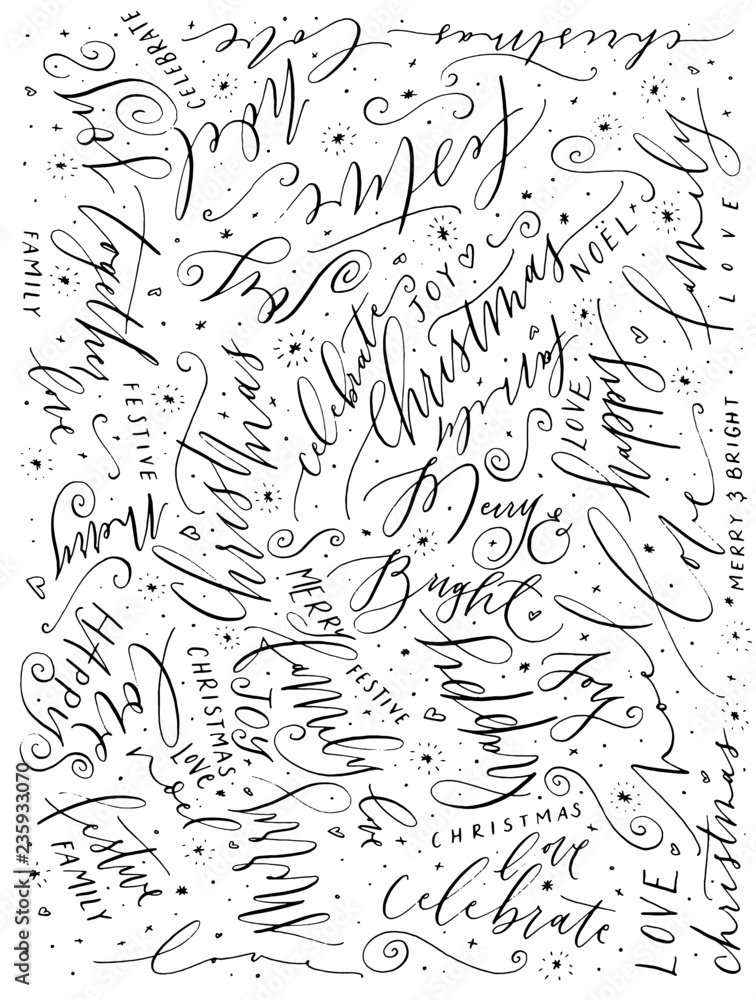 CELEBRATE
love
christmas
joy
noel
festive
family
together
FAMILY
joy
celebrate
JOY
christmas
NOËL
LOVE
love
FESTIVE
christmas
family
LOVE
happy
MERRY & BRIGHT
merry
Merry &
Bright
love
HAPPY
love
CHRISTMAS
JOY
MERRY
family
FESTIVE
happy
joy
noel
LOVE
noel
festive
FAMILY
merry
love
CHRISTMAS
love
celebrate
LOVE
christmas
love
Adobe Stock | #235933070